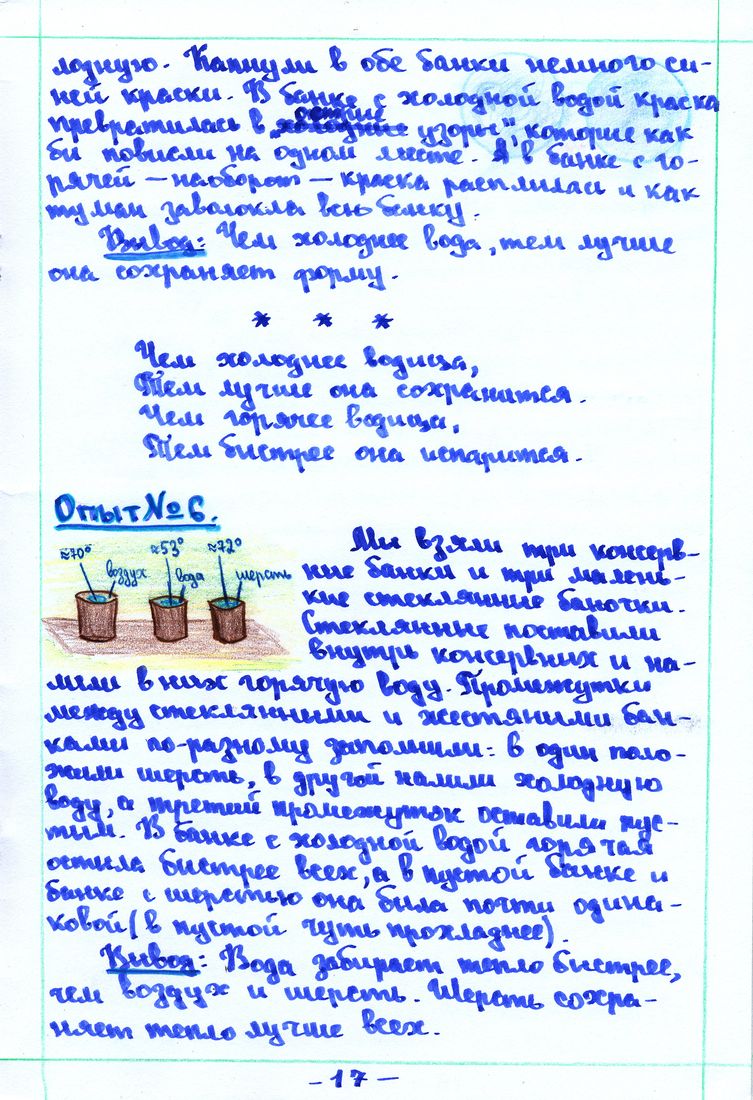 лодную. Капнули в обе банки немного си-
ней краски. В банке с холодной водой краска
острые
превратилась в „холодные узоры", которые как
бы повисли на одном месте. А в банке с го-
рячей – наоборот – краска расплылась и как
туман заволокла всю банку.
Вывод: Чем холоднее вода, тем лучше
она сохраняет форму.
* * *
Чем холоднее водица,
Тем лучше она сохранится.
Чем горячее водица,
Тем быстрее она испарится.
Опыт № 6.
≈70° ≈53° ≈72°
воздух вода шерсть
Мы взяли три консерв-
ные банки и три малень-
кие стеклянные баночки.
Стеклянные поставили
внутрь консервных и на-
лили в них горячую воду. Промежутки
между стеклянными и жестяными бан-
ками по-разному заполнили: в один поло-
жили шерсть, в другой налили холодную
воду, а третий промежуток оставили пус-
тым. В банке с холодной водой горячая
остыла быстрее всех, а в пустой банке и
банке с шерстью она была почти одина-
ковой (в пустой чуть прохладнее).
Вывод: Вода забирает тепло быстрее,
чем воздух и шерсть. Шерсть сохра-
няет тепло лучше всех.
- 17 -